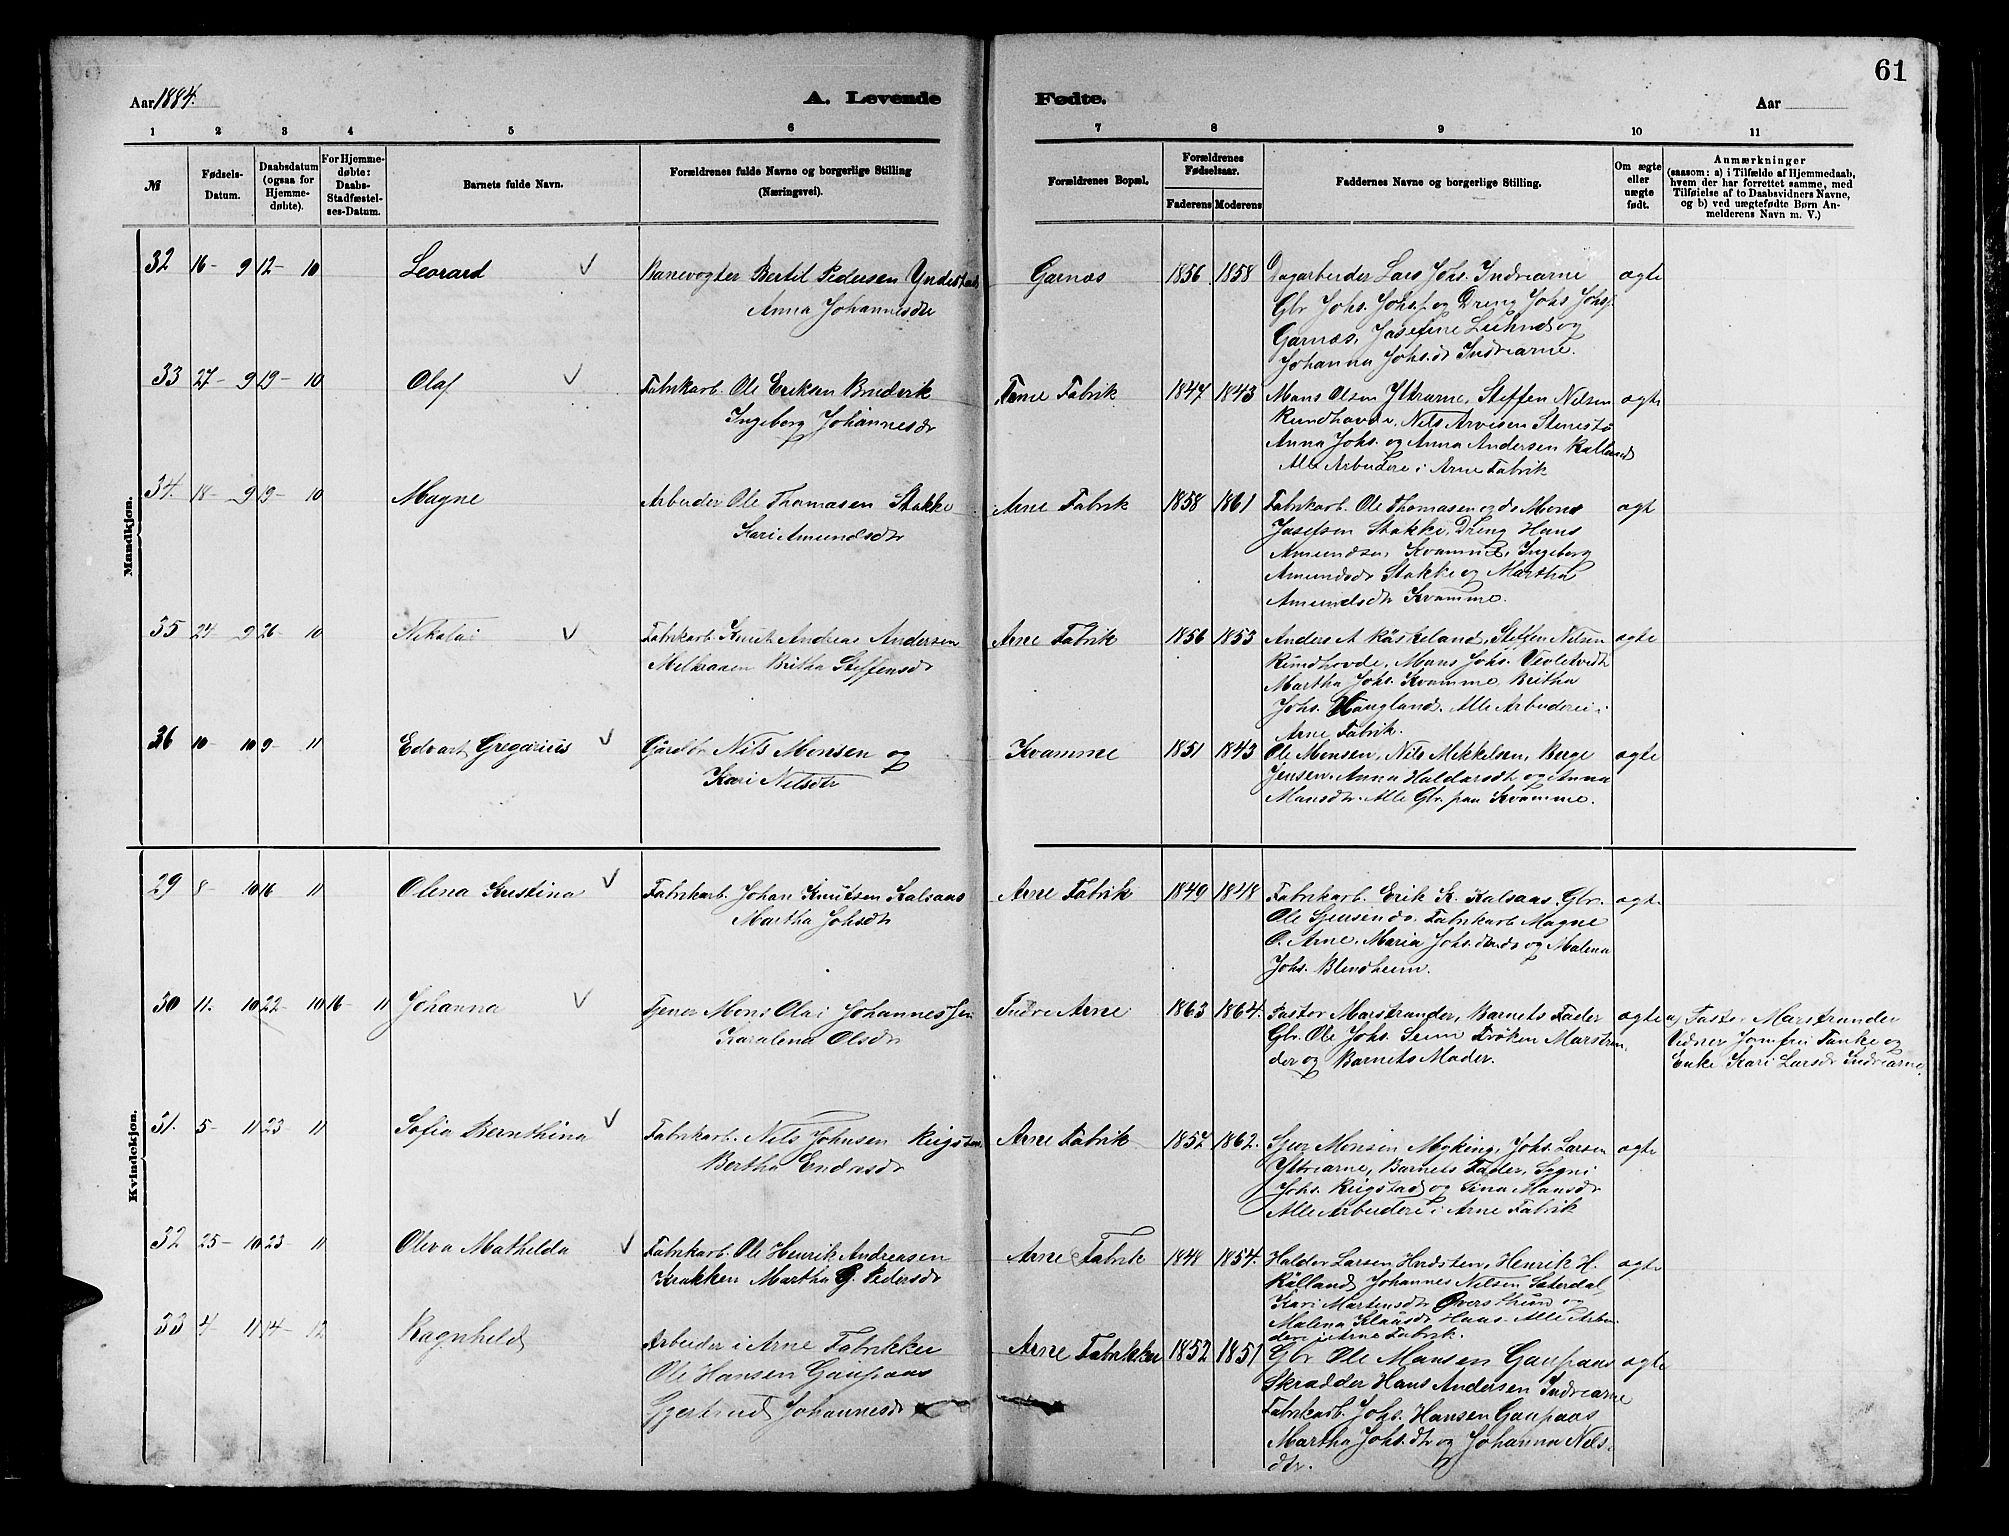 61
Aar 1884.
A. Levende
Fødte.
Aar
1 2 3 4 5 6 7 8 9 10 11
№
Fødsels-
Datum.
Daabsdatum
(ogsaa for
Hjemme-
døbte).
For Hjemme-
døbte:
Daabs-
Stadfæstel-
ses-Datum.
Barnets fulde Navn.
Forældrenes fulde Navne og borgerlige Stilling
(Næringsvei).
Forældrenes Bopæl.
Forældrenes
Fødselsaar.
Faderens Moderens
Faddernes Navne og borgerlige Stilling.
Om ægte
eller
uægte
født.
Anmærkninger
(saasom: a) i Tilfælde af Hjemmedaab,
hvem der har forrettet samme, med
Tilføielse af to Daabsvidners Navne,
og b) ved uægtefødte Børn An-
melderens Navn m. V.)
Mandkjøn.
32 16-9 12-10 Leonard
Banevogter Bertil Pedersen Yndestad
Anna Johannesdtr
Garnæs 1856 1858
Dagarbeider Lars Johs. Indrearne
Gbr Johs. Johs. og Dreng Johs Johs.
Garnæs, Josefine Leihnd og
Johanna Johs.dr Indrearne.
ægte
33 27-9 19-10 Olaf
Fabrikarb. Ole Eriksen Bruderik
Ingeborg Johannesdr
Arne Fabrik 1847 1843
Mons Olsen Ytrearne, Steffen Nilsen
Rundhovde, Nils Arvesen Stenestø
Anna Johs. og Anna Andersen Kalland
Alle Arbeidere i Arne Fabrik
ægte
34. 18-9 19-10 Magne
Arbeider Ole Thomasen Stakke
Kari Amundsdtr
Arne Fabrik 1858 1861
Fabrikarb. Ole Thomasen og do Mons
Josefsen Stakke, Dreng Hans
Amundsen Kvamme, Ingeborg
Amundsdr Stakke og Martha
Amundsdtr Kvamme.
ægt
35 24-9 26-10 Nikolai
Fabrikarb. Knut Andreas Andersen
Melkraaen Britha Steffensdr
Arne Fabrik 1856 1853
Anders A Röskeland, Steffen Nilsen
Rundhovde, Mons Johs.
Martha Johs. Kvamme, Britha
Johs. Haugland. Alle Arbeidere i
Arne Fabrik.
ægte
36 10-10 9-11 Edvart Gregorius
Gårdbr Nils Monsen og
Kari Nilsdtr
Kvamme 1851 1843
Ole Monsen, Nils Mikkelsen, Berge
Jensen, Anna Haldorsdtr og Anna
Monsdtr. Alle Gbr. paa Kvamme.
ægte
Kvindekjøn.
29 8-10 16 11 Olina Kristina
Fabrikarb. Johan Knutsen Kalsaas
Martha Johsdtr
Arne Fabrik 1849 1848
Fabrikarb. Erik K. Kalsaas, Gbr.
Ole Sjursen do. Fabrikarb Magne
O. Arne, Maria Johs. dtr do og Malena
Johs. Blendheim.
ægt.
30 11.10 22-10 16-11 Johanna
Tjener Mons Olai Johannessen
Karalena Olsdr
Indre Arne 1863 1864.
Pastor Marstrander, Barnets Fader
Gbr. Ole Johs. Seim Frøken Marstran-
der og Barnets Moder.
ægte
a) Pastor Marstrander
Vidner Jomfru Fanke og
Enke Kari Larsdr Indrearne.
31. 5-11 23 11 Sofia Bernthina
Fabrikarb. Nils Johnsen Rigstad
Bertha Endresdr
Arne Fabrik 1852 1862.
Sjur Monsen Myking, Johs. Larsen
Ytrearne, Barnets Fader, Sygni
Johs. Rigstad og Sina Monsdr
Alle Arbeidere i Arne Fabrik
ægte
32 25-10 23-11 Oleva Mathilda
Fabrikarb. Ole Henrik Andreasen
Krakken Martha G. Pedersdr
Arne Fabrik 1848 1854.
Haldor Larsen Herdsten, Henrik H.
Kålland, Johannes Nilsen Säterdal
Kari Martensdtr Øversthun og
Malena Klausdr Haas. Alle Arbei-
dere i Arne Fabrik.
ægte
33 4-11 14-12 Ragnhild
Arbeider i Arne Fabrikker
Ole Hansen Gaupaas
Gjertrud Johannesdr
Arne Fabrikker 1852 1851
Gbr Ole Monsen Gaupaas
Skrædder Hans Andersen Indrearne
Fabrikarb. Johs. Hansen Gaupaas
Martha Johs.dtr og Johanna Nels.
dtr.
ægte